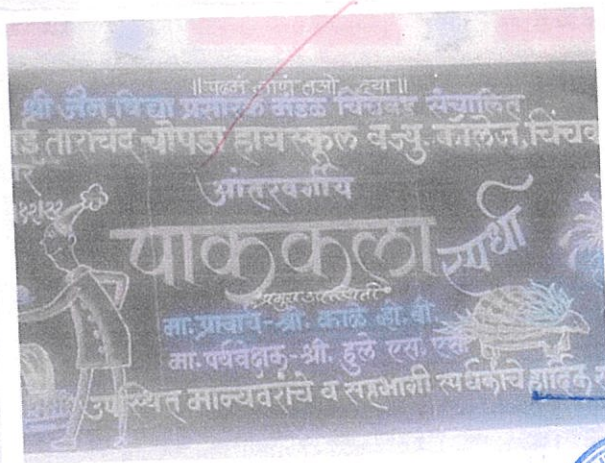 ॥पढमं नाणं तओ दया॥
श्री जैन विद्या प्रसारक मंडळ चिंचवड संचालित
ताराचंद चोपडा हायस्कूल व ज्यु. कॉलेज, चिंचव
आंतरवर्गीय
पाककला स्पर्धा
प्रमुख उपस्थिती
मा. प्राचार्य - श्री. काळे व्ही. बी.
मा. पर्यवेक्षक - श्री. हुले एस. एस
उपस्थित मान्यवरांचे व सहभागी स्पर्धकांचे हार्दिक